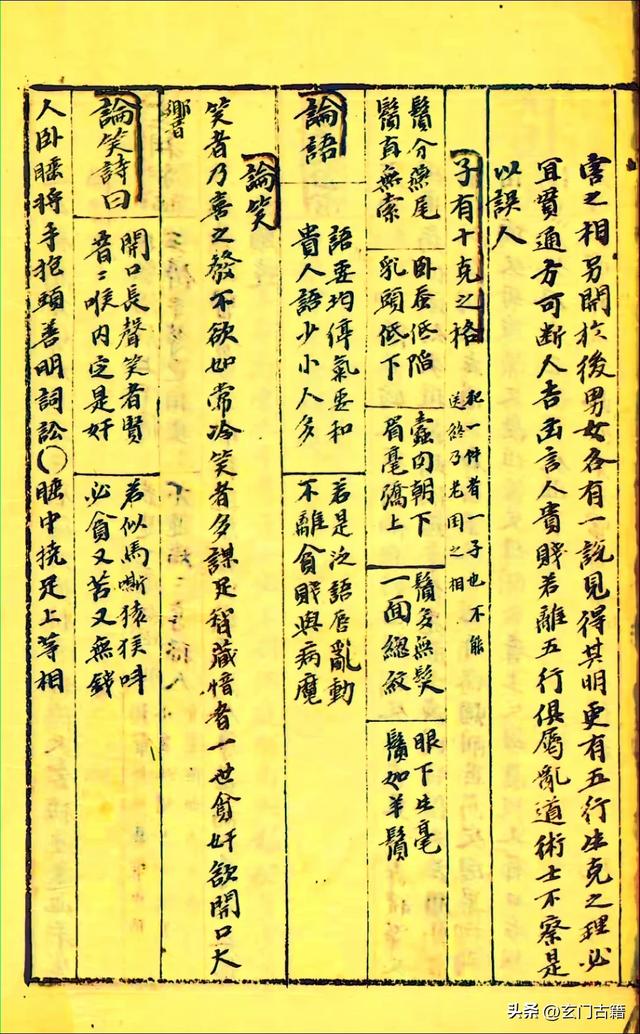 害之相另開於後男女各有一說見得其明更有五行生克之理必
宜貫通方可斷人吉凶言人貴賤若離五行俱屬亂道術士不察是
以誤人
子有十克之格 犯一件者一子也不能
送終乃老困之相
鬚分燕尾 卧蚕低陷 蠢肉朝下 鬚多無髮 眼下生毫
鬚直無索 乳頭低下 眉毫矯上 一面總紋 鬚如羊鬚
論語
語要均停氣要和 若是泛語唇亂動
貴人語少小人多 不離貧賤與病魔
論笑
笑者乃喜之發不欲如常冷笑者多謀足智藏惜者一世貧奸欲開口大
响音
論笑詩曰
開口長聲笑者賢 若似馬嘶猿猴叫
昏昏喉內定是奸 必貧又苦又無錢
人卧睡將手抱頭善明詞訟〇睡中撓足上等相
头条 @玄门古籍